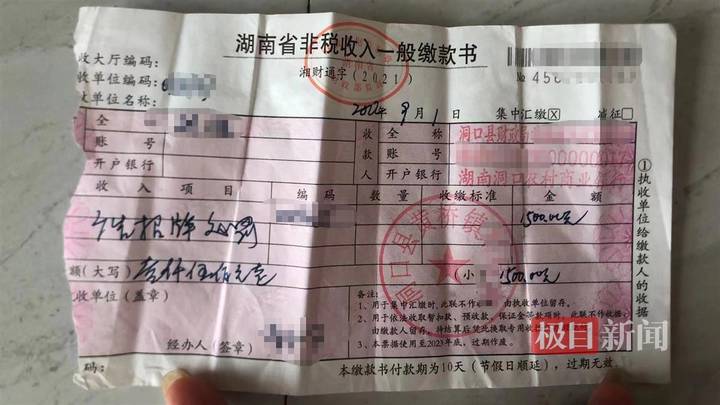 湖南省非税收入一般缴款书
湘财通字(2021)
收大厅编码:
收单位编码:
收单位名称:
№ 458
2024年9月1日 集中汇缴☒ 减征☐
全 收 全 称 洞口县财政局
账 号 款 账 号 00000017
开户银行 人 开户银行 湖南洞口农村商业银行
收 入 项 目 编 码 数 量 收缴标准 金 额
广告招牌 罚 1500.00元
额(大写)壹仟伍佰元 (小 1500.00元
洞口县黄桥镇
收单位(盖章)
经办人(签章)
备注:
1、用于集中汇缴时,此联不作 由执收单位留存。
2、用于依法收取暂扣款、预收款、保证金等款项时,此联不作收据,
由缴款人留存,待结算后凭此换取专用收
3、本票据使用至2023年底,过期作废。
本缴款书付款期为10天(节假日顺延),过期无效。
码:
①执收单位给缴款人的收据
极目新闻